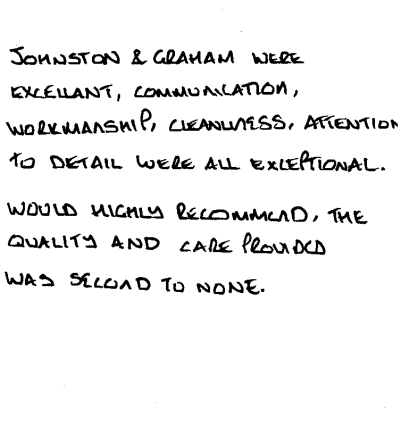 JOHNSTON & GRAHAM WERE
EXCELLANT, COMMUNICATION,
WORKMANSHIP, CLEANLINESS, ATTENTION
TO DETAIL WERE ALL EXCEPTIONAL.
WOULD HIGHLY RECOMMEND, THE
QUALITY AND CARE PROVIDED
WAS SECOND TO NONE.